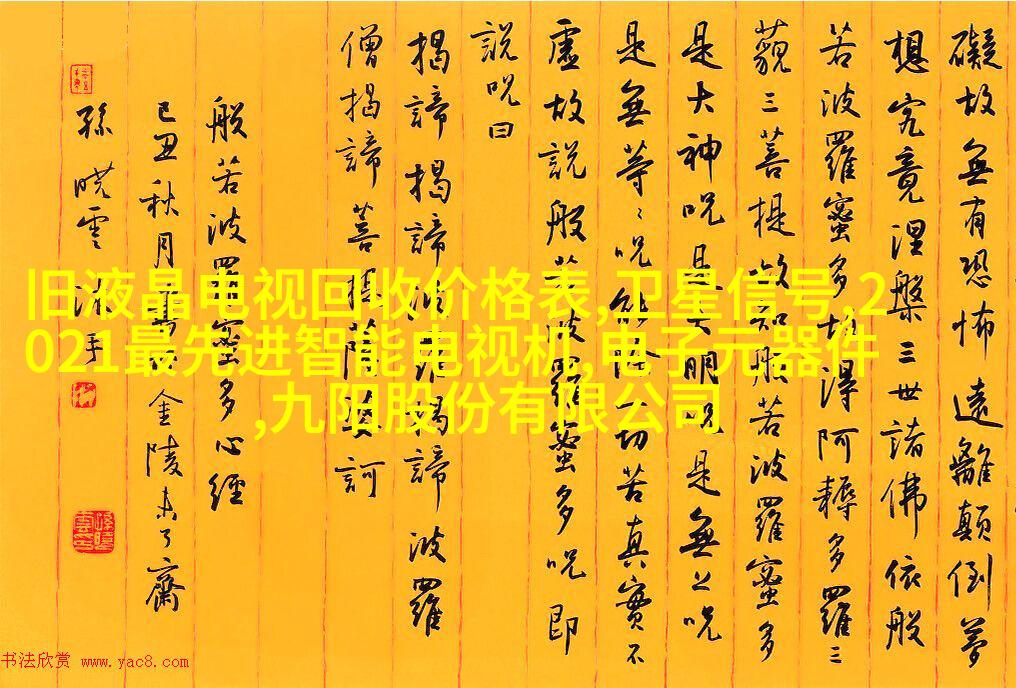 礙故無有恐怖遠離顛倒夢
想究竟涅槃三世諸佛依般
若波羅蜜多故得阿耨多羅三
藐三菩提故知般若波羅蜜多
是大神咒是大明咒是無上咒
是無等〻咒能除一切苦真實不
虛故說般若波羅蜜多咒即
說咒曰
揭諦揭諦波羅揭諦波羅
僧揭諦菩提薩婆訶
般若波羅蜜多心經
己丑秋月金陵未了齋
孫曉雲沐手
旧液晶电视回收价格表,卫星信号,2
021最先进智能电视机,电子元器件
,九阳股份有限公司
书法欣赏 www.yac8.com